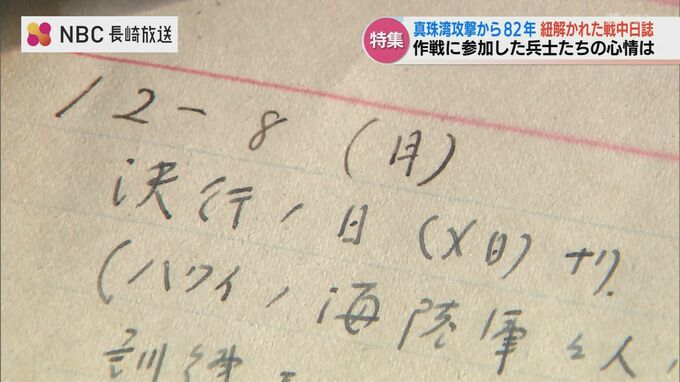 NBC 長崎放送
特集
真珠湾攻撃から82年 紐解かれた戦中日誌
作戦に参加した兵士たちの心情は
12-8 (月)
決行ノ日 (X日) ナリ.
(ハワイノ海陸軍々人ノ
訓練